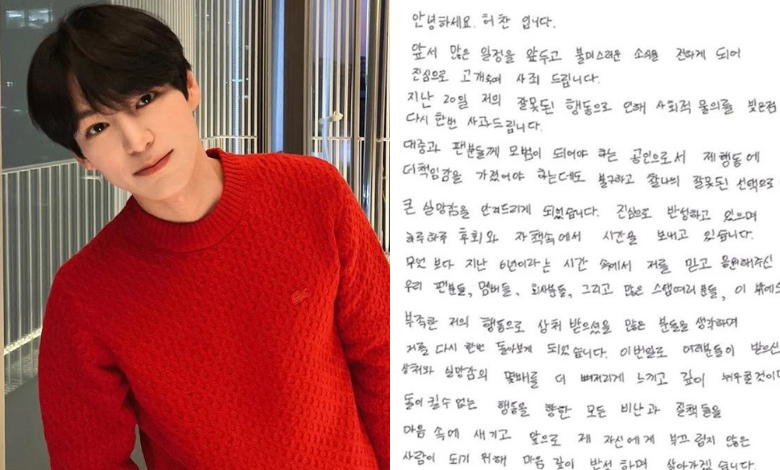 안녕하세요. 허찬 입니다.
앞서 많은 일정을 앞두고 불미스러운 소식을 전하게 되어
진심으로 고개숙여 사죄 드립니다.
지난 20일 저의 잘못된 행동으로 인해 사회적 물의를 빚은점
다시 한번 사과드립니다.
대중과 팬분들께 모범이 되어야 하는 공인으로서 제 행동에
더 책임감을 가졌어야 하는데도 불구하고 찰나의 잘못된 선택으로
큰 실망감을 안겨드리게 되었습니다. 진심으로 반성하고 있으며
하루하루 후회와 자책속에서 시간을 보내고 있습니다.
무엇 보다 지난 6년이라는 시간 속에서 저를 믿고 응원해주신
우리 팬분들, 멤버들, 회사분들, 그리고 많은 스탭여러분들, 이 밖에도
부족한 저의 행동으로 상처 받으셨을 많은 분들을 생각하며
저를 다시 한번 돌아보게 되었습니다. 이번일로 여러분들이 받으신
상처와 실망감의 몇배를 더 뼈저리게 느끼고 깊이 뉘우칠것이며
돌이킬수 없는 행동을 향한 모든 비난과 질책들을
마음 속에 새기고 앞으로 제 자신에게 부끄럽지 않은
사람이 되기 위해 마음 깊이 반성 하며 살아가겠습니다.